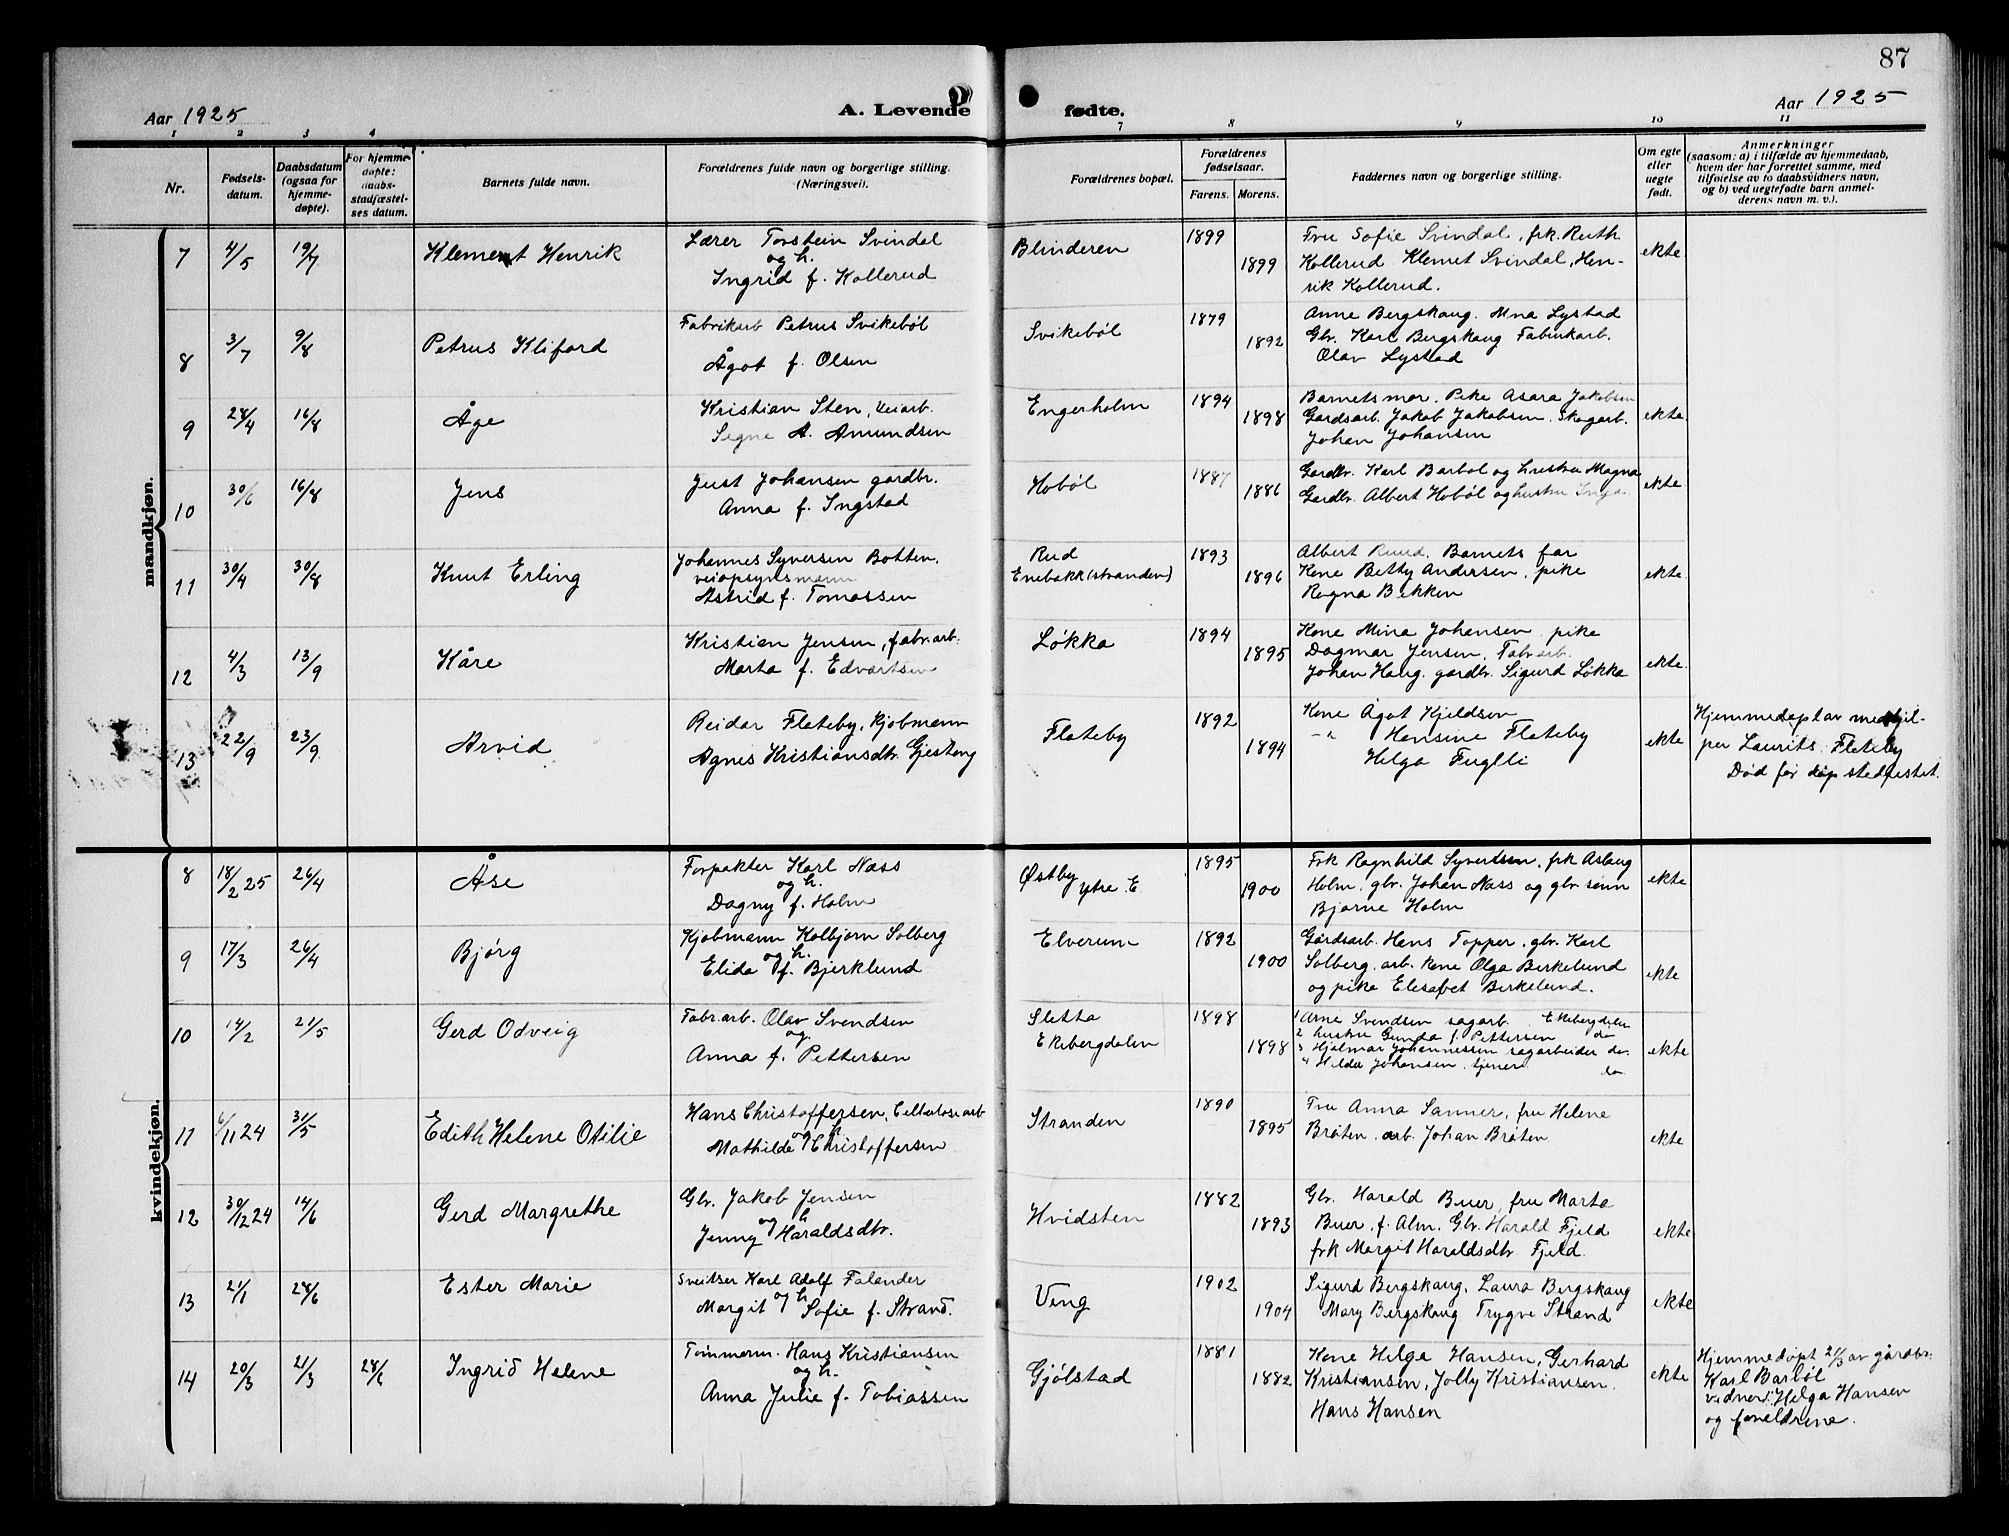 87
Aar 1925
A. Levende fødte.
Aar 1925
1 2 3 4 7 8 9 10 11
Nr.
Fødsels-
datum.
Daabsdatum
(ogsaa for
hjemme-
døpte).
For hjemme-
døpte:
daabs-
stadfæstel-
ses datum.
Barnets fulde navn.
Forældrenes fulde navn og borgerlige stilling.
(Næringsvei).
Forældrenes bopæl.
Forældrenes
fødselsaar.
Farens. Morens.
Faddernes navn og borgerlige stilling.
Om egte
eller
uegte
født.
Anmerkninger
(saasom: a) i tilfælde av hjemmedaab,
hvem der har forrettet samme, med
tilføielse av to daabsvidners navn,
og b) ved uegtefødte barn anmel-
derens navn m. v.).
mandkjøn.
7 4/5 19/7 Klement Henrik
Lærer Torstein Svindal
og h.
Ingrid f. Kollerud
Blinderen 1899 1899
Fru Sofie Svindal, frk. Ruth
Kollerud Klemet Svindal, Hen-
rik Kollerud.
ekte
8 3/7 9/8 Petrus Kliford
Fabrikarb Petrus Svikebøl
Ågot f. Olsen
Svikebøl 1879 1892
Anne Bergskaug. Mna Lystad
Gbr. Karl Bergskaug Fabrikarb.
Olav Lystad
9 28/4 16/8 Åge
Kristian Sten, Veiarb.
Signe A. Amundsen
Engerholm 1894 1898
Barnets mor. Pike Asara Jakobsen
Gardsarb. Jakob Jakobsen. Skogarb.
Johan Johansen
ekte
10 30/6 16/8 Jens
Just Johansen gardbr.
Anna f. Ingstad
Hobøl 1887 1886
Gardbr. Karl Barbøl og hustru Magna
Gardbr. Albert Hobøl og hustru Inga
ekte
11 30/4 30/8 Knut Erling
Johannes Syversen Botten,
veiopsynsmann
Astrid f. Tomassen
Rud
Enebakk (stranden) 1893 1896
Albert Ruud, Barnets far
Kone Betty Andersen, pike
Ragna Bekken
ekte
12 4/3 13/9 Kåre
Kristian Jensen, fabr.arb.
Marta f. Edvartsen
Løkka 1894 1895
Kone Mina Johansen pike
Dagmar Jensen, Fabr arb.
Johan Haug. gardbr. Sigurd Løkka
ekte.
13 22/9 23/9 Arvid
Reidar Flateby, kjøbmann
Agnes Kristiansdtr. Gjestang
Flateby 1892 1894
Kone Ågot Kjeldsen
-"- Hensine Flateby
Helga Fuglli
ekte
Hjemmedøpt av medhjel-
per Laurits Flateby
Død før dåp stedfestet.
kvindekjøn.
8 18/2 25 26/4 Åse
Forpakter Karl Næss
og h.
Dagny f. Holm
Østby ytre E 1895 1900
Frk Ragnhild Syvertsen, frk Aslaug
Holm, gbr. Johan Næss og gbr. sønn
Bjarne Holm
ekte
9 17/3 26/4 Bjørg
Kjøbmann Kolbjørn Solberg
og h.
Elida f. Bjerklund
Elverum 1892 1900
Gårdsarb. Hans Topper, gbr. Karl
Solberg, arb. kone Olga Birkelund
og pike Elisabet Birkelund.
ekte
10 14/2 21/5 Gerd Odveig
Fabr.arb. Olav Svendsen
og
Anna f. Pettersen
Sletta
Ekebergdalen 1898 1898
1 Arne Svendsen sagarb. Ekebergdalen
2 hustru Gunda f. Pettersen do
3 Hjalmar Johannessen sagarbeider do.
4 Hilda Johansen, tjener do
ekte
11 6/11 24 31/5 Edith Helene Otilie
Hans Christoffersen, Cellulosearb
og h
Mathilde Christoffersen
Stranden 1890 1895
Fru Anna Sanner, fru Helene
Bråten, arb. Johan Bråten
ekte
12 30/12 24 14/6 Gerd Margrethe
Gbr. Jakob Jensen
og h
Jenny Haraldsdtr.
Hvidsten 1882 1893
Gbr. Harald Buer, fru Marta
Buer, f. Alm. Gbr. Harald Fjeld
frk Margit Haraldsdtr Fjeld.
ekte
13 21/1 28/6 Ester Marie
Sveitser Karl Adolf Falander
og h.
Margit Sofie f. Strand.
Ving 1902 1904
Sigurd Bergskaug, Laura Bergskaug
Mary Bergskaug Trygve Strand
ekte
14 20/3 21/3 28/6 Ingrid Helene
Tømmerm. Hans Kristiansen
og h.
Anna Julie f. Tobiassen
Gjølstad 1881 1882
Kone Helga Hansen, Gerhard
Kristiansen, Jolly Kristiansen.
Hans Hansen
ekte
Hjemmedøpt 21/3 av gårdbr.
Karl Barbøl
vidner: Helga Hansen
og foreldrene.